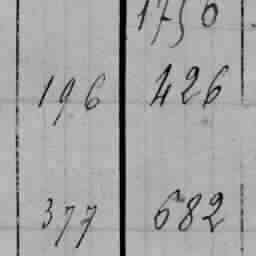 1756
196 426
377 682